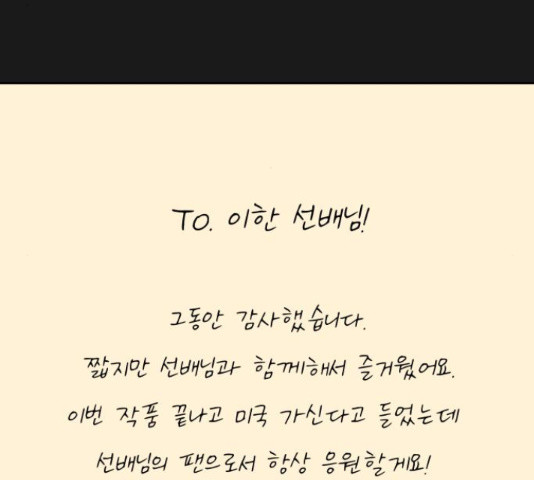 TO. 이한 선배님!
그동안 감사했습니다.
짧지만 선배님과 함께해서 즐거웠어요.
이번 작품 끝나고 미국 가신다고 들었는데
선배님의 팬으로서 항상 응원할게요!